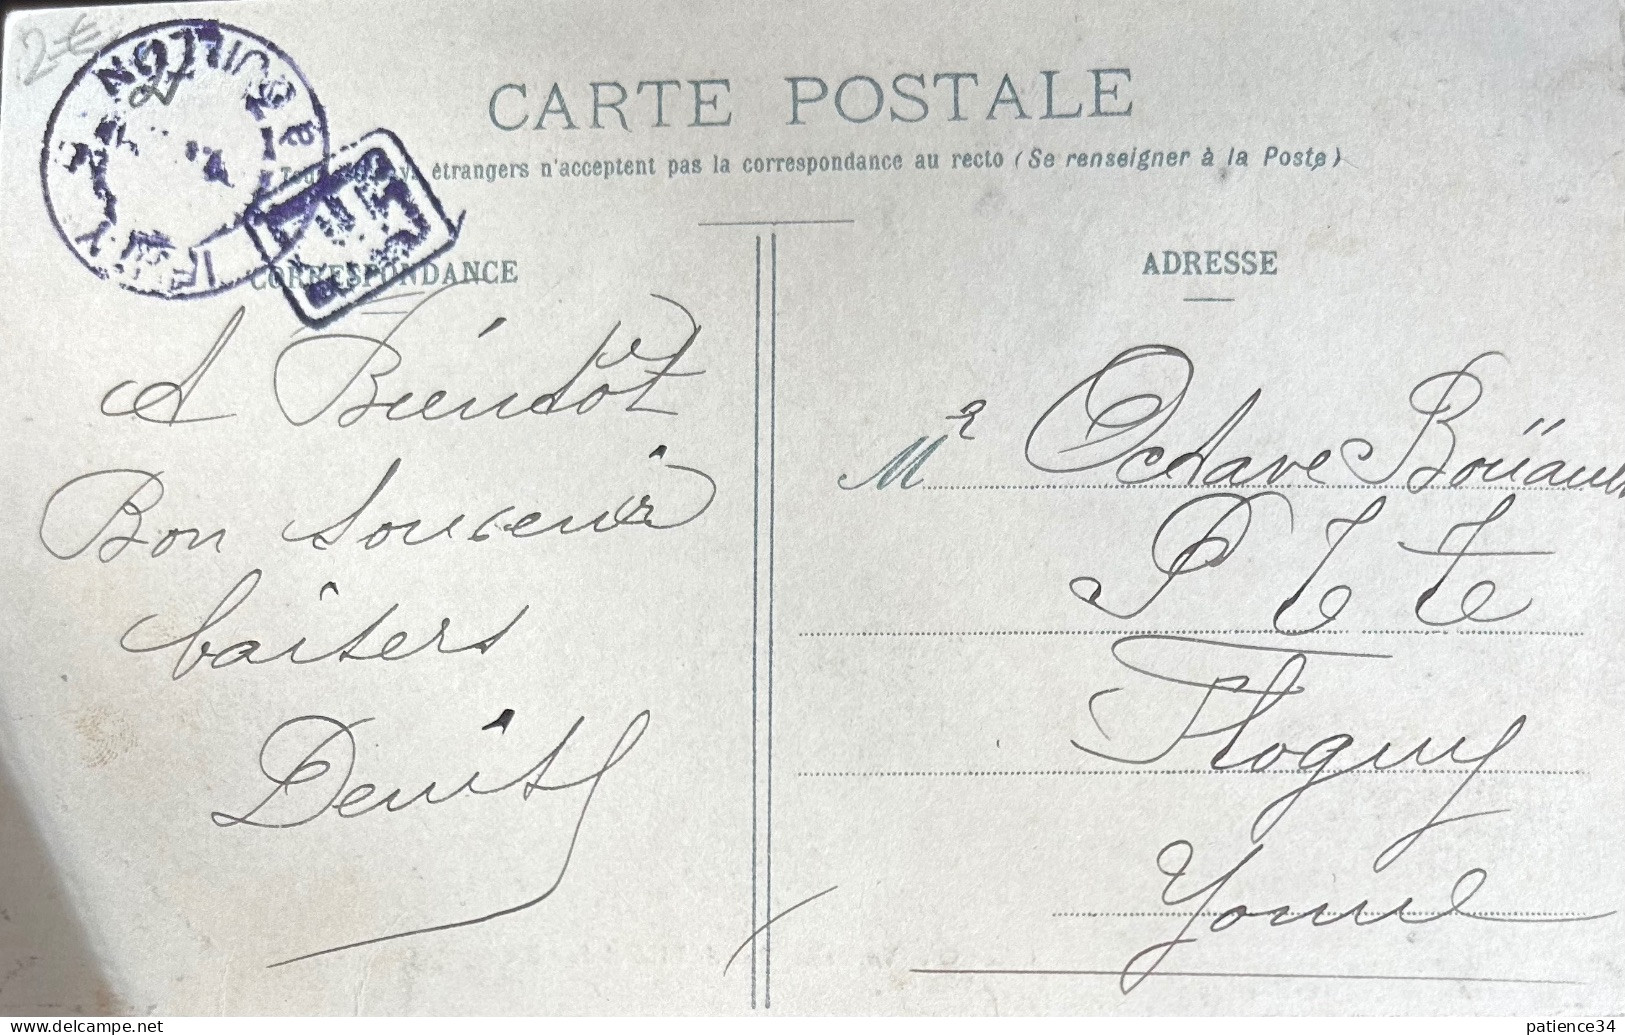 2 €
CARTE POSTALE
étrangers n'acceptent pas la correspondance au recto (Se renseigner à la Poste)
CORRESPONDANCE
A Bientôt
Bon Souvenir
baisers
Denis
ADRESSE
Mr Octave Boüault
P t t
Flogny
Yonne
www.delcampe.net
patience34